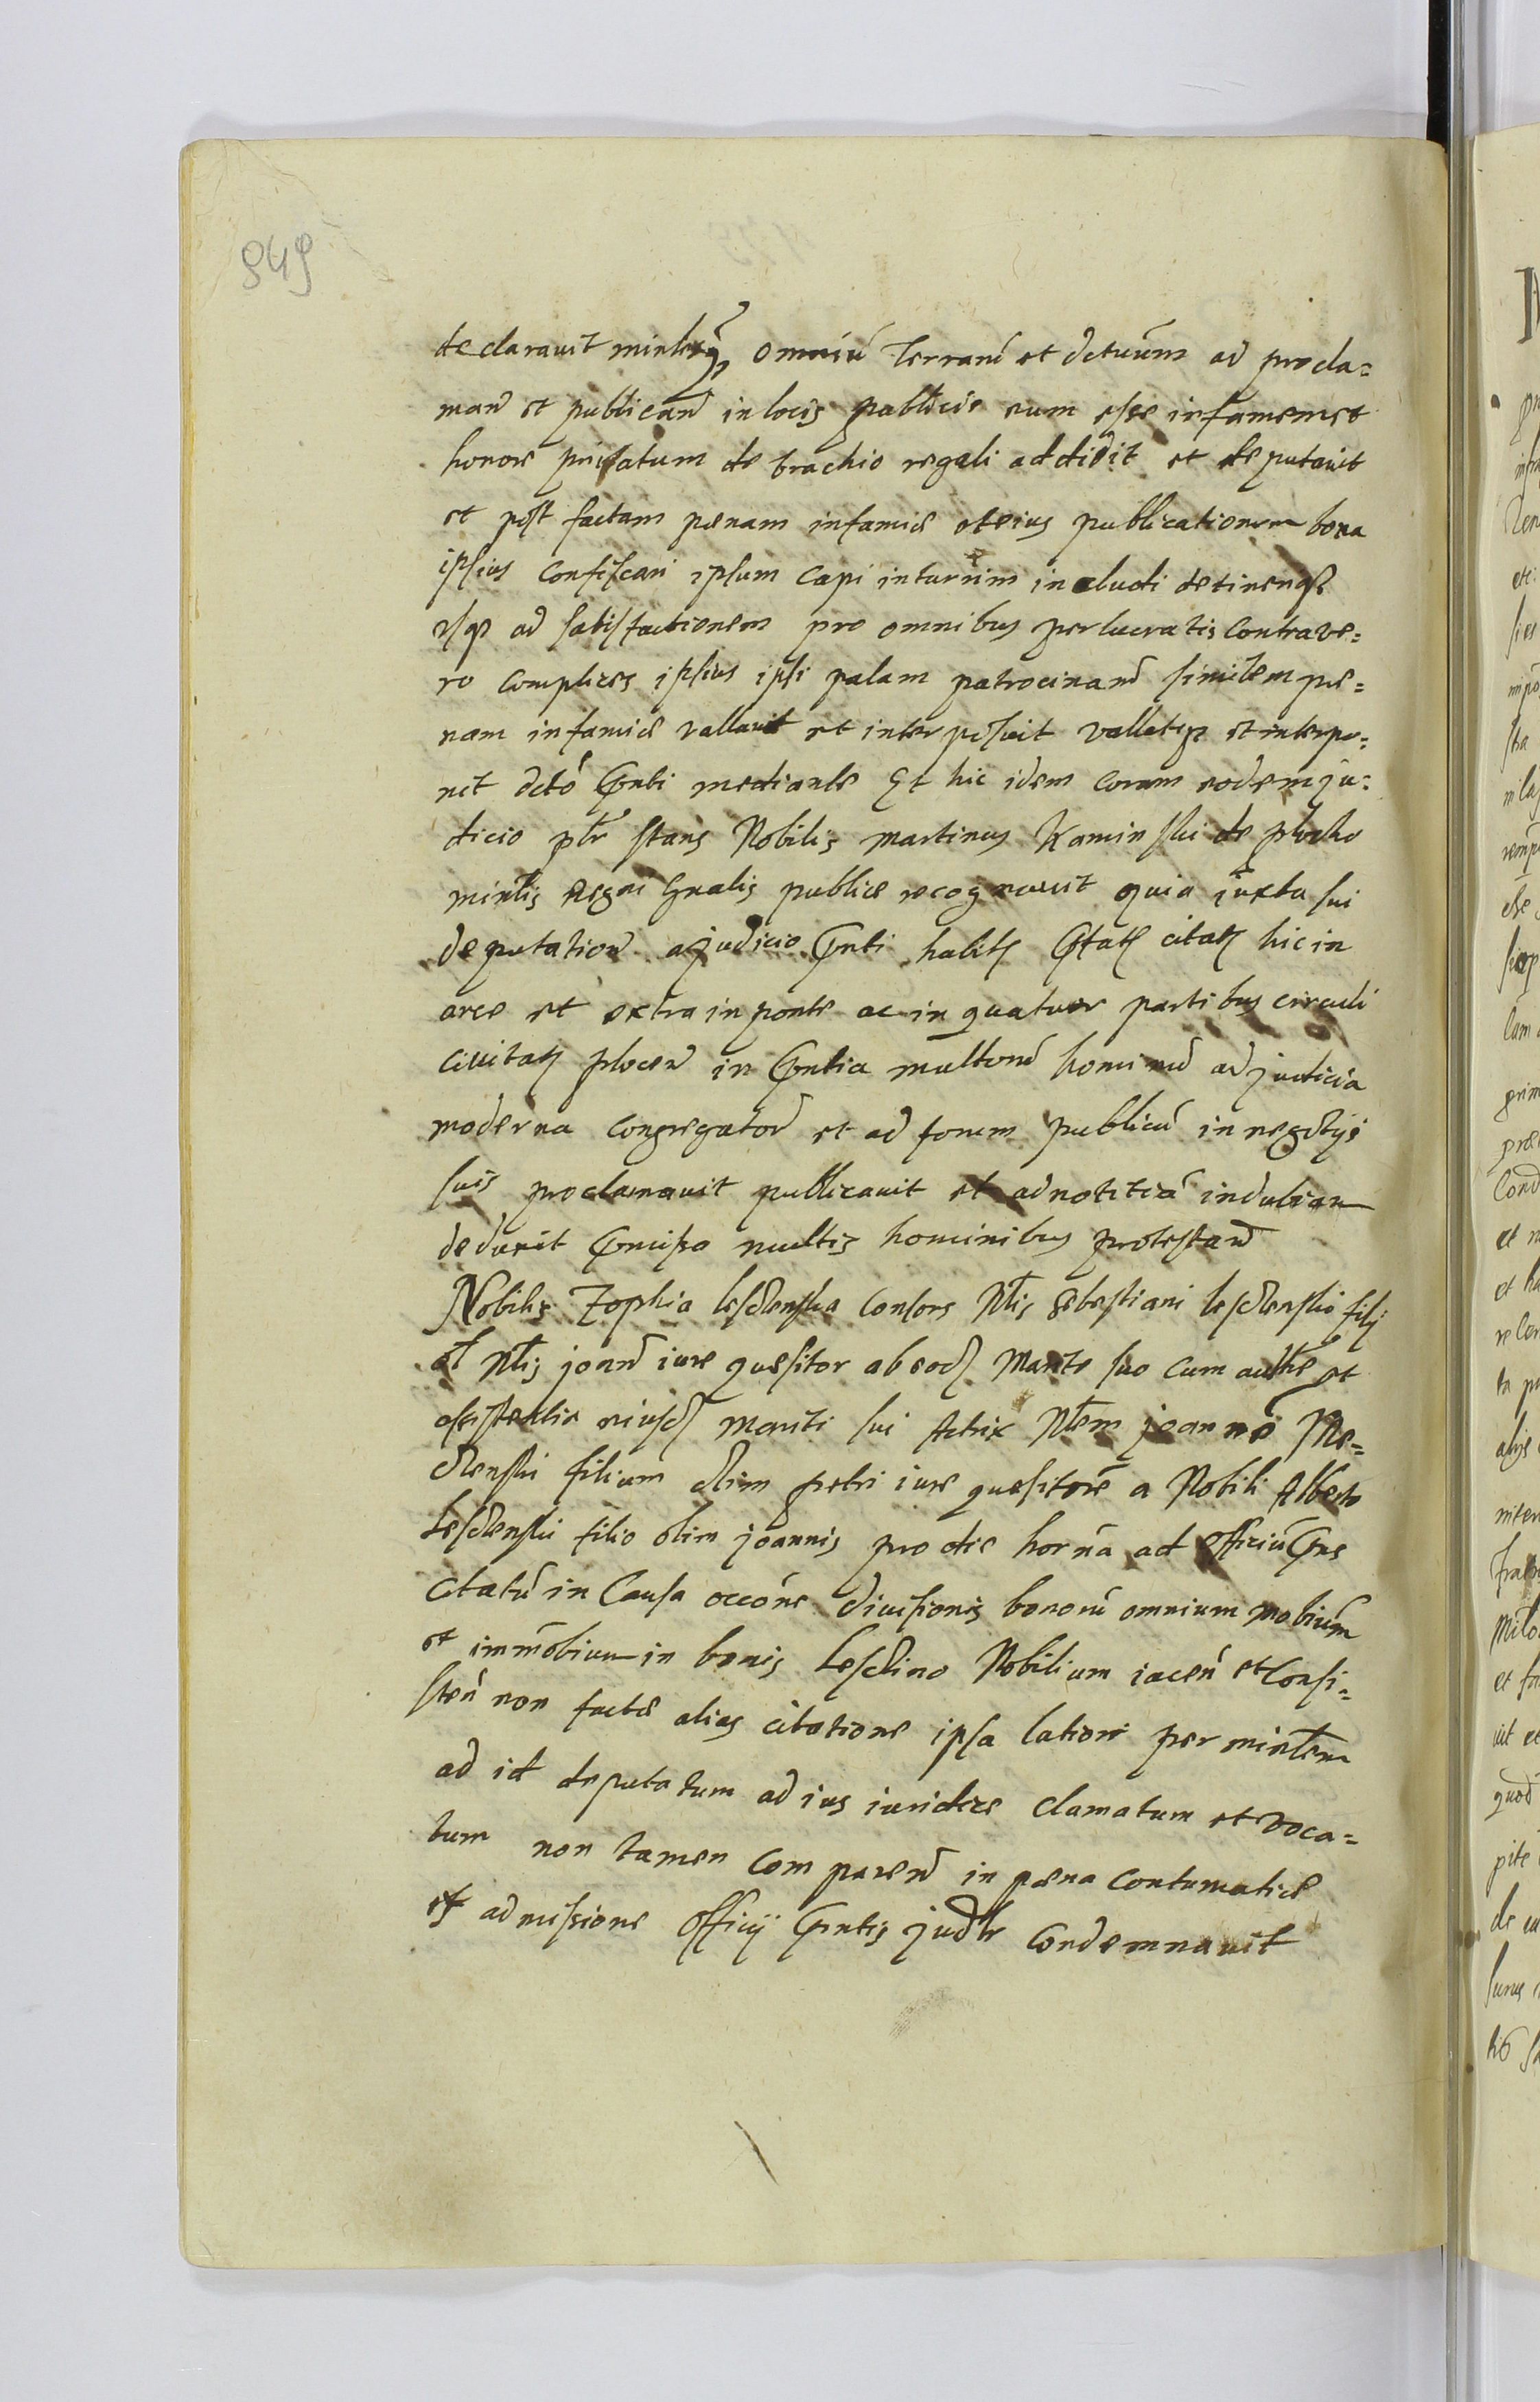 849
declarauit minlesq, omniū Terrarū et dctuūm ad procla=
man̄ et publican̄ in locis publicis eum esse infamem et
honore priuatum de brachio regali addidit et deputauit
et post factam penam infamie et eius publicationem bona
ipsius confiscari ipsum capi in turrim includi detineriqȝ
usqȝ ad satisfactionem pro omnibus perlucratis Contra ve=
ro complices ipsius ipsi palam patrocinan̄ similem pe=
nam infamie vallauit et interposuit vallatqȝ et interpo=
nit dcto pnti mediante Et hic idem coram eodem ju=
dicio pltr stans Nobilis martinus Kaminski de plocko
minlis Regni Gnalis publice recognouit quia iuxta sui
deputation̄ a judicio pnti habitȝ citatȝ hic in
arce et extra in ponte ac in quatuor partibus circuli
ciuitatȝ plocen̄ in pntia multorū hominū ad judicia
moderna congregator̄ et ad forum publicū in negotijs
suis proclamauit publicauit et ad notitiā indubiam
deduxit pmisso multis hominibus protestan̄
Nobilis Zophia lesczenska Consors Nlis Sebestiani lesczenski filij
ol Nlis joan̄ iure quesitor ab eodȝ Marito suo cum authe et
assistentia eiusdȝ mariti sui Actrix Nlem joannē Me=
sczenski filium olim petri iure quesitorē a Nobili Alberto
Lesczenski filio olim joannis pro die hornā ad officiū pns
Citatū in Causa occōne diuisionis bonorū omnium mobiūm
et immōbium in bonis Lesczino Nobilium iacen̄ et Consi=
sten̄ non facte alias citatione ipsa latiori per minlem
ad id deputatum ad ius iuridice clamatum et voca=
tum non tamen comparen̄ in pena contumatie
ex admissione officij pntis judlr Condemnauit